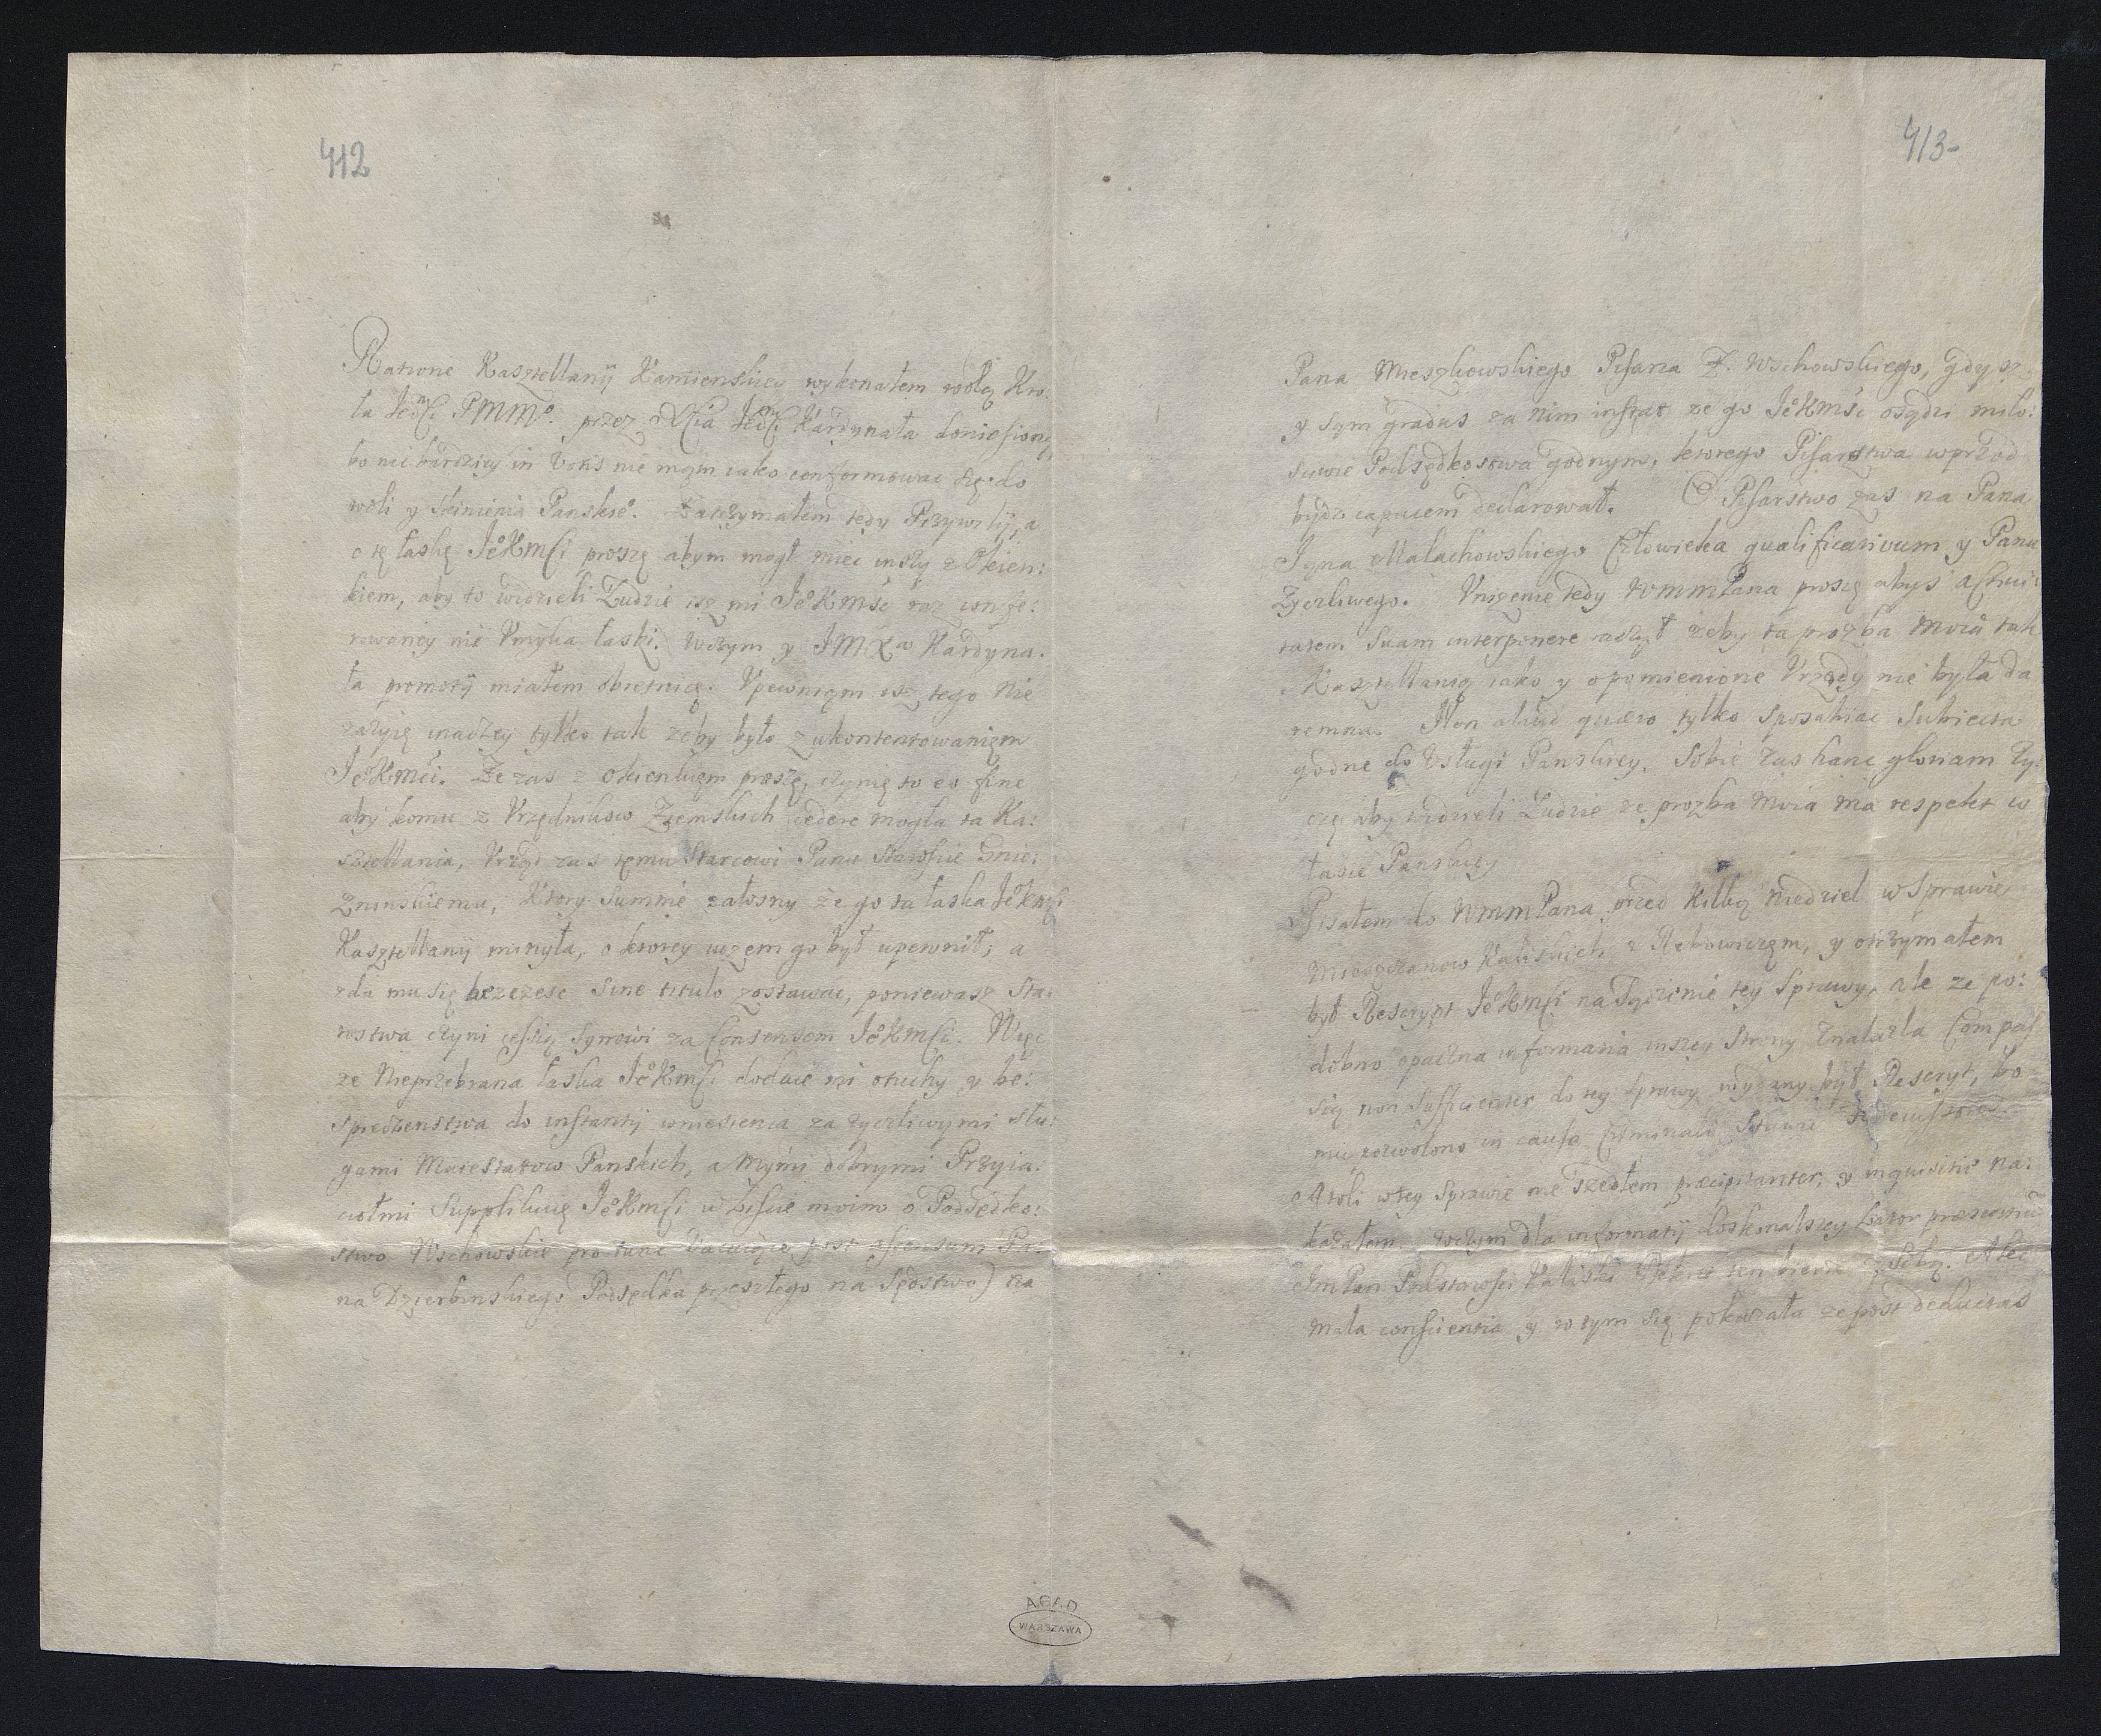 412
Ratione Kasztellanij Kamienskiey wykonałem wolą Kro:
la JeoMci PMMo. przez Xcia JeoMci Kardynała doniesioną
bo nic bardziey in votis nie mam iako conformowac się do
woli y skinienia Panskieo. Zatrzymałem tedy Przywiley, a
o tę łaskę JeoKmsci proszę abym mogł miec inszy z Okien:
kiem, aby to widzieli Ludzie isz mi JeoKmsc raz confe:
rowaney nie Vmyka łaski. wczym y JMXa Kardyna.
ła promotij miałem obietnicę. Vpewniam isz tego nie
zazyię inaczey tylko tak zeby było z ukontentowaniem
JeoKmsci. Ze zas z okienkiem proszę, czynię to eo fine
aby komu z Vrzędnikow Ziemskich cedere mogła ta Ka:
sztellania, Vrząd zas temu Starcowi Panu Staroscie Gnie:
znienskiemu, Ktory summe załosny ze go ta łaska JeoKmsci
Kasztellanij minęła, o ktorey iuzem go był upewnił; a
zda mu się bezecnie sine titulo zostawac, poniewasz Sta:
rostwa czyni cessią Synowi za Consensem JeoKmsci. Więc
ze Nieprzebrana łaska JeoKmsci dodaie mi otuchy y be:
spieczenstwa do instantij wniesienia za zyczliwymi słu:
gami Maiestatow Panskich, a Mymi dobrymi Przyia:
ciołmi Supplikuię JeoKmsci w Liscie moim o Podsędko:
stwo Wschowskie pro tunc vacuiące post ascensum Pa:
na Dzierbinskiego Podsędka przeszłego na Sęstwo) na
413-
Pana Mieszkowskiego Pisarza Z. Wschowskiego, gdysz
y sym gradus za nim instat ze go JeoKmsc osądzi miło:
sciwie Podsędkostwa godnym, ktorego Pisarstwa wprzod
bydz capacem declarował. O Pisarstwo zas na Pana
Jana Małachowskiego Człowieka qualificatiuum y Panu
Zyczliwego. Vnizenie tedy WMMPana proszę abys
suam interponere raczył zeby ta prozba moia tak
Kasztellanią iako y opomienione Vrzędy nie była da
remna. Non aliud quæro tylko sposabiac Subiecta
godne do Vsługi Panskiey. Sobie zas hanc gloriam zy:
czę aby widzieli Ludzie ze prozba moia ma respekt w
łasce Panskiey
Pisałem do WMMPana przed kilką Niedziel w Sprawie
Mieszczanow Kaliskich z Rękowiczem, y otrzymałem
był Rescrypt JeoKmsci na sądzenie tey Sprawy, ale ze po:
dobno opaczna informatia inszey strony znalazła
się non sufficienter do tey sprawy wydany był Rescryt, bo
mu pozwolono in causa Criminali Stawic
Atoli w tey Sprawie nie szedłem præcipitanter, y inquisitie na:
kazałem. wczym dla informatij doskonalszey
JmPan Podstarosci Kaliski Dekret ten bierze z sobą. Alec
mala conscientia y w tym się pokazała ze post deductas
A.G.A.D
WARSZAWA